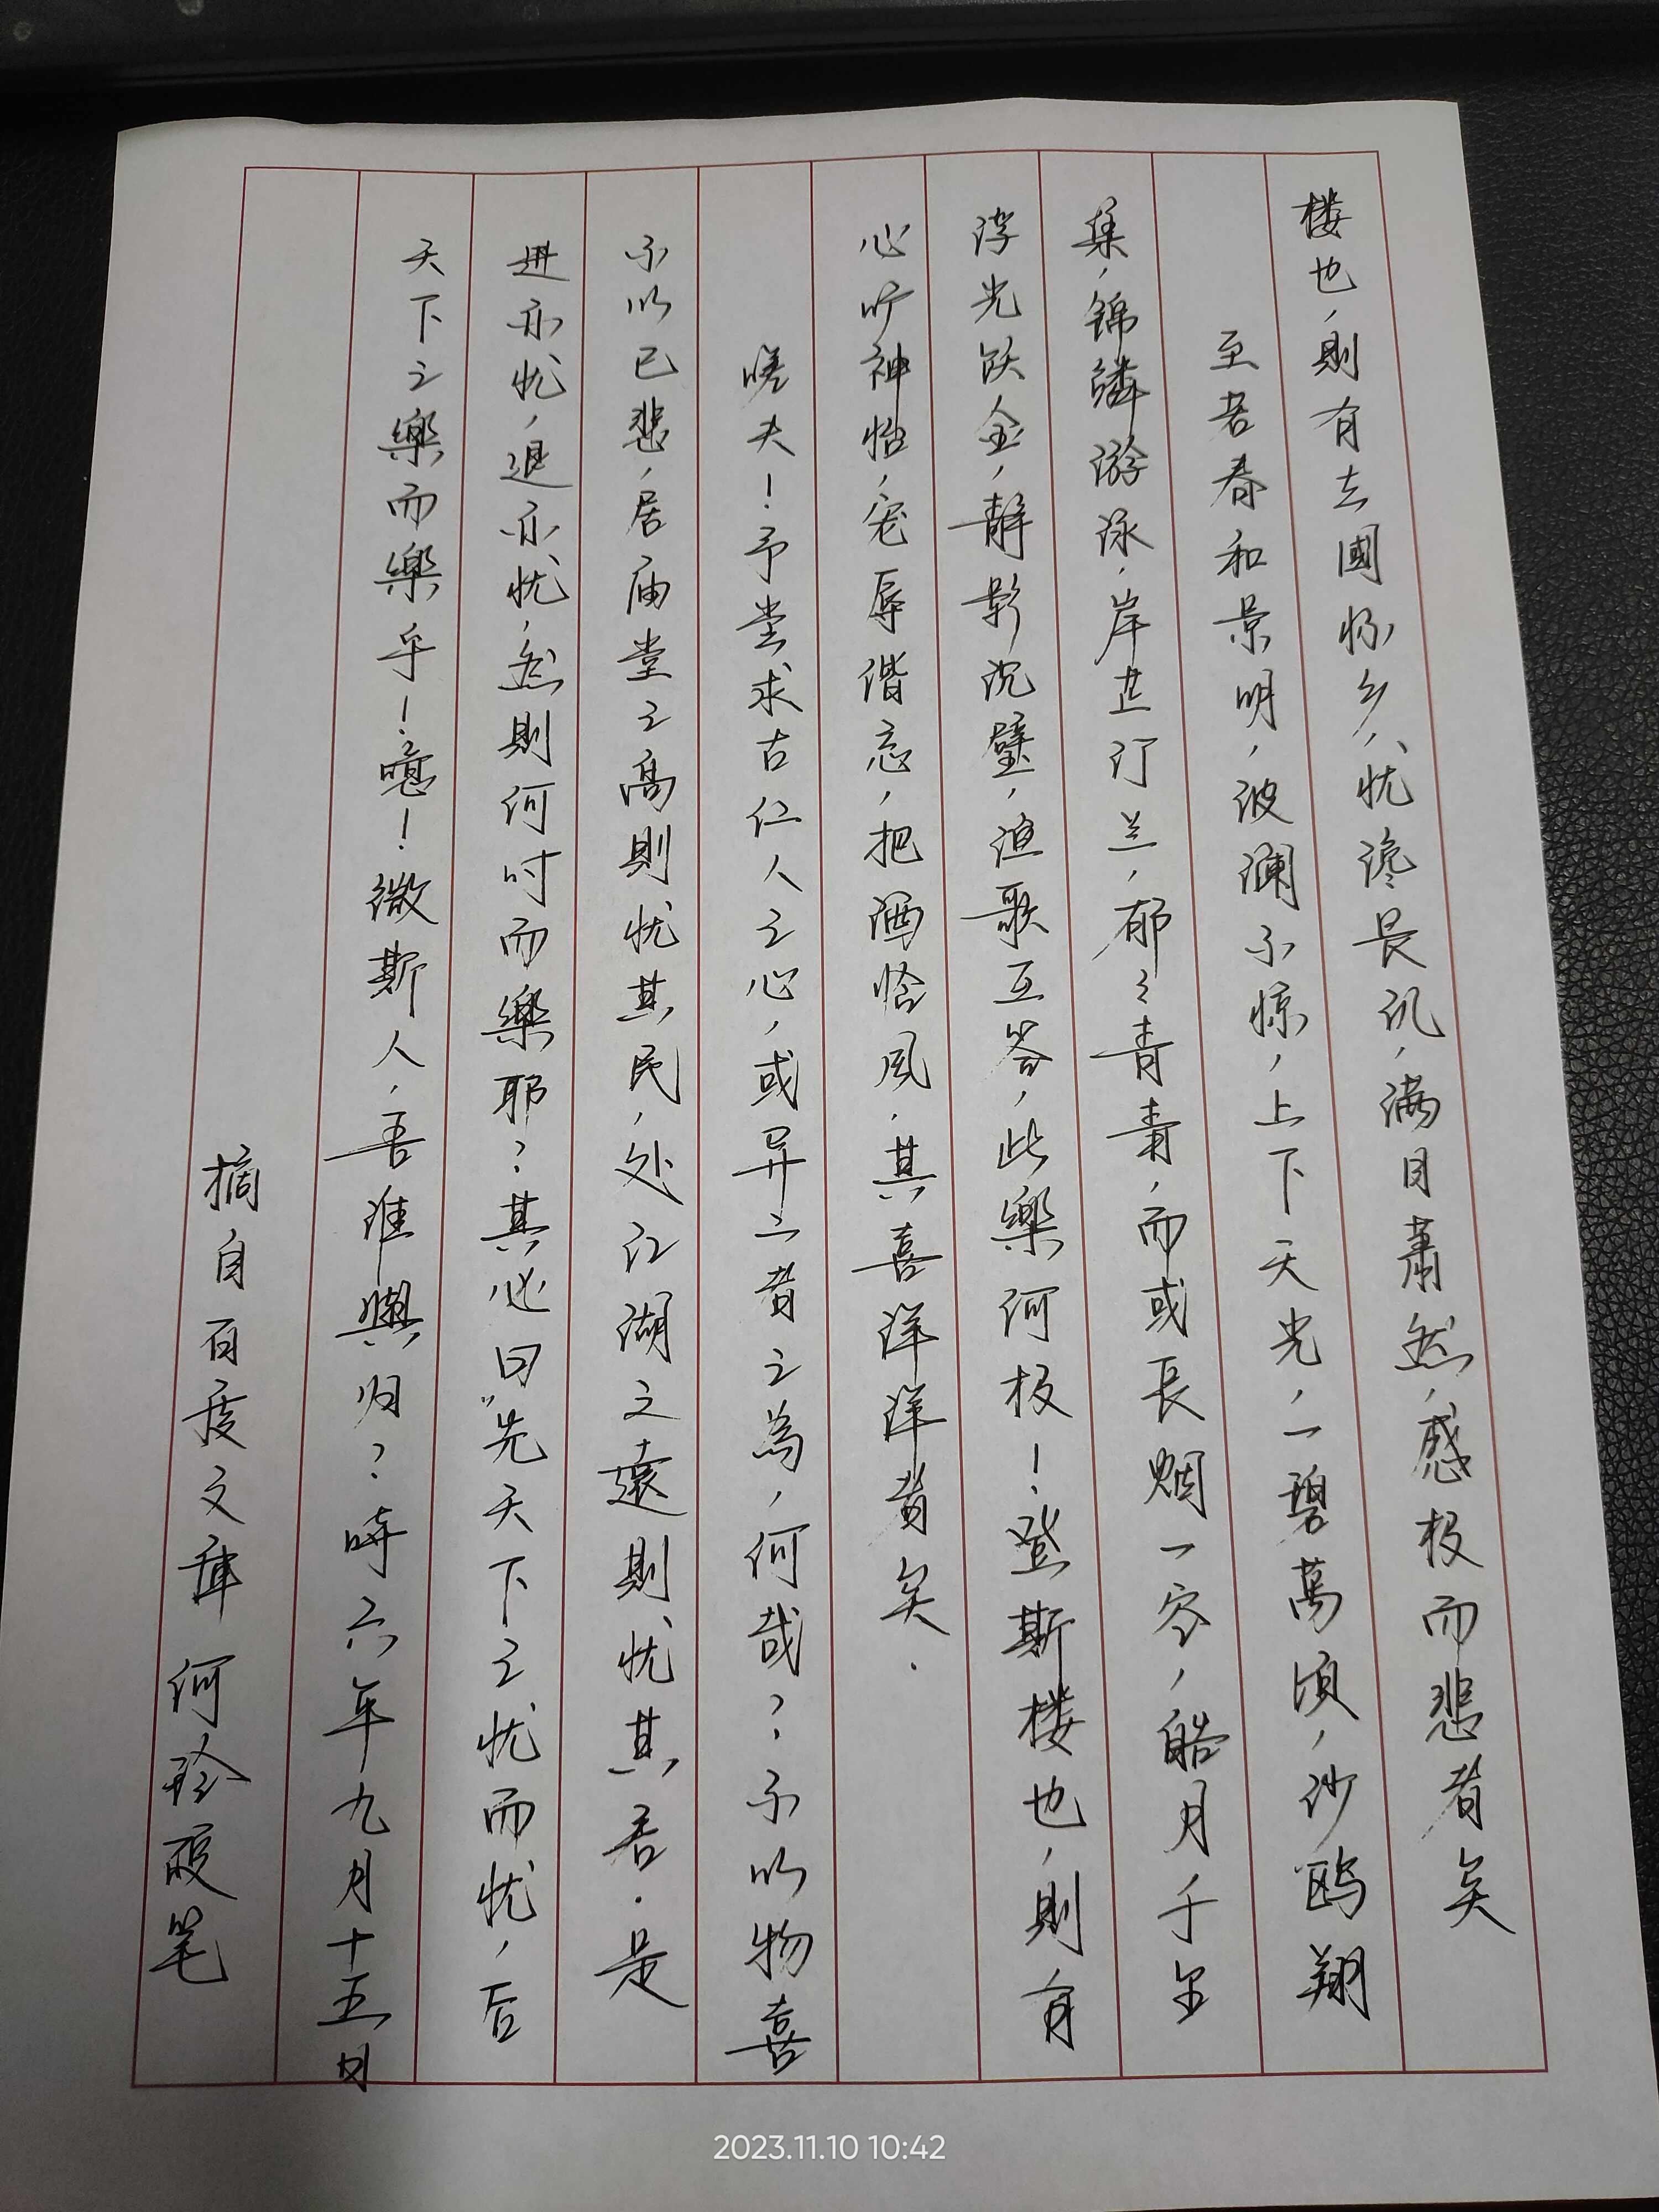 楼也，則有去國怀乡，忧谗畏讥，满目蕭然，感极而悲者矣
至若春和景明，波瀾不惊，上下天光，一碧萬頃，沙鸥翔
集，锦鳞游泳，岸芷汀兰，郁々青青，而或長烟一空，皓月千里
浮光跃金，静影沉璧，渔歌互答，此樂何极！登斯楼也，則有
心旷神怡，宠辱偕忘，把酒临风，其喜洋洋者矣．
嗟夫！予尝求古仁人之心，或异二者之為，何哉？不以物喜
不以已悲，居庙堂之高則忧其民，处江湖之遠則忧其君．是
進亦忧，退亦忧，然則何时而樂耶？其必曰“先天下之忧而忧，后
天下之樂而樂乎！噫！微斯人，吾谁與归？時六年九月十五日
摘自百度文庫 何 硬笔
2023.11.10 10:42